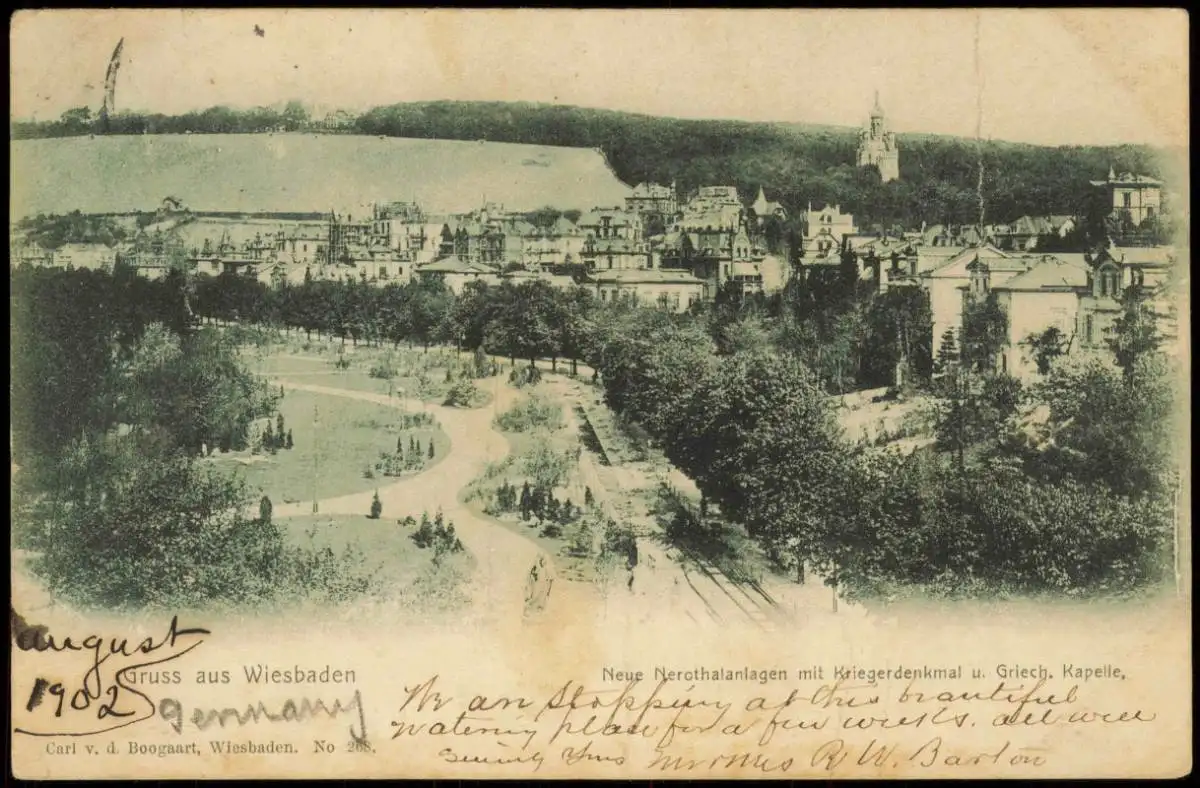 august
1902
Gruss aus Wiesbaden
germany
Carl v. d. Boogaart, Wiesbaden. No 268.
Neue Nerothalanlagen mit Kriegerdenkmal u. Griech. Kapelle,
We are stopping at this beautiful
watering place for a few weeks. all well
yours R. W. Barton